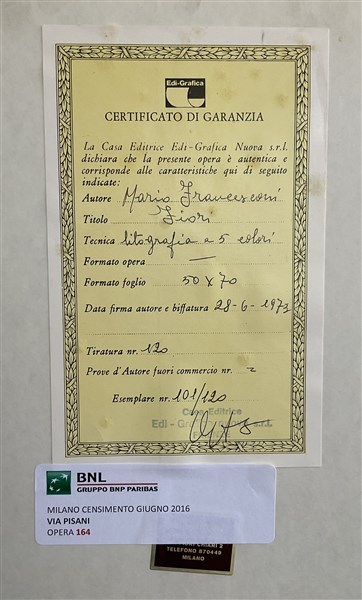 Edi-Grafica
CERTIFICATO DI GARANZIA
La Casa Editrice Edi-Grafica Nuova s.r.l.
dichiara che la presente opera è autentica e
corrisponde alle caratteristiche qui di seguito
indicate:
Autore Mario Francesconi
Titolo Fiori
Tecnica litografia a 5 colori
Formato opera —
Formato foglio 50 x 70
Data firma autore e biffatura 28-6-1973
Tiratura nr. 120
Prove d'Autore fuori commercio nr.
Esemplare nr. 101/120
Casa Editrice
Edi - Gra s.r.l.
BNL
GRUPPO BNP PARIBAS
MILANO CENSIMENTO GIUGNO 2016
VIA PISANI
OPERA 164
TELEFONO 870449
MILANO